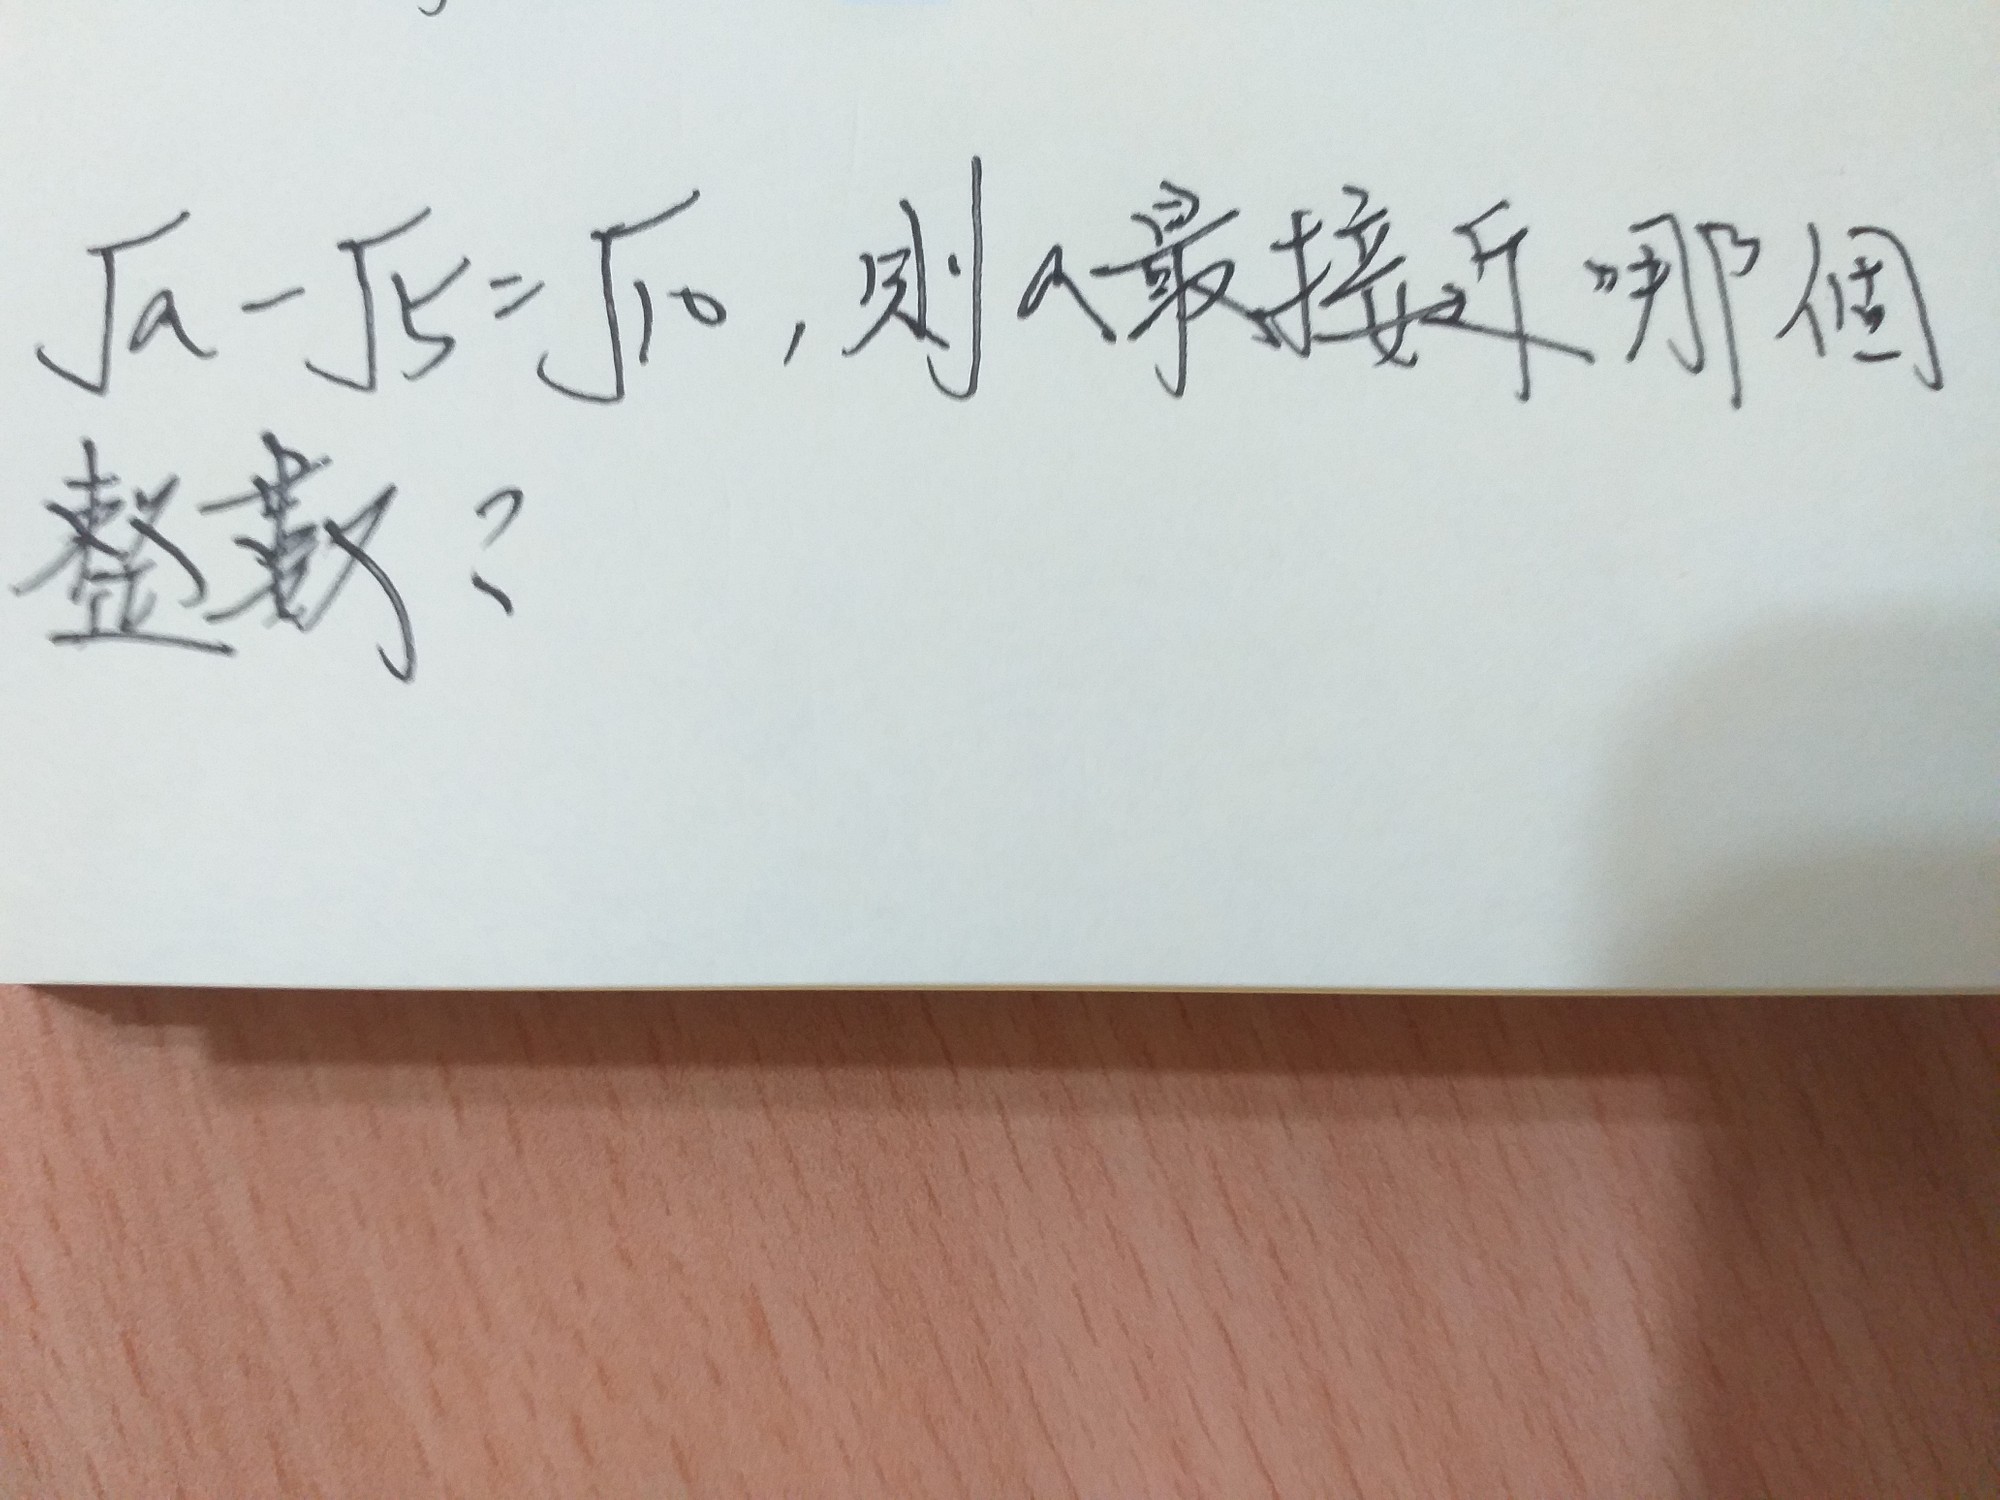 √a-√5=√10,則a最接近哪個
整數?